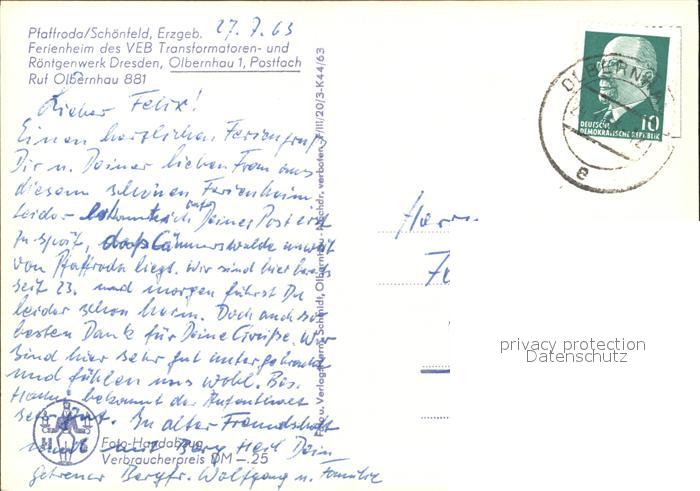 Pfaffroda/Schönfeld, Erzgeb. 27.7.63
Ferienheim des VEB Transformatoren- und
Röntgenwerk Dresden, Olbernhau 1, Postfach
Ruf Olbernhau 881
Lieber Felix!
Einen herzlichen Feriengruß
Dir u. Deiner lieben Frau aus
diesem schönen Ferienheim.
Leider ich Deiner Post erst
zu spät, daß Cämmerswalde unweit
von Pfaffroda liegt. Wir sind hier bereits
seit 23. und morgen fährst Du
leider schon heim. Doch auch
besten Dank für Deine Grüße. Wir
sind hier sehr gut untergebracht
und fühlen uns wohl. Bes.
bekommt der Aufenthalt
sehr gut. In alter Freundschaft
und mit Berg Heil Dein
getreuer Bergfr. Wolfgang u. Familie
Foto-Handabzug
Verbraucherpreis DM -.25
H
Foto u. Verlag Herm. Schmidt, Olbernhau · Nachdr. verboten. III/20/3-K44/63
OLBERNHAU
e
10
DEUTSCHE
DEMOKRATISCHE REPUBLIK
Herrn
privacy protection
Datenschutz